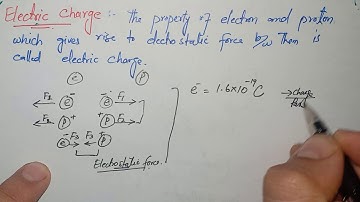 Electric Charge :- The property of electron and proton
which gives rise to electrostatic force b/w Them is
called electric charge.
e p
F1 e⁻ e⁻ F1
F2 p⁺ p⁺ F2
e⁻ F3 F3 p⁺
Electrostatic force.
e⁻ = 1.6×10⁻¹⁹C
→ charge